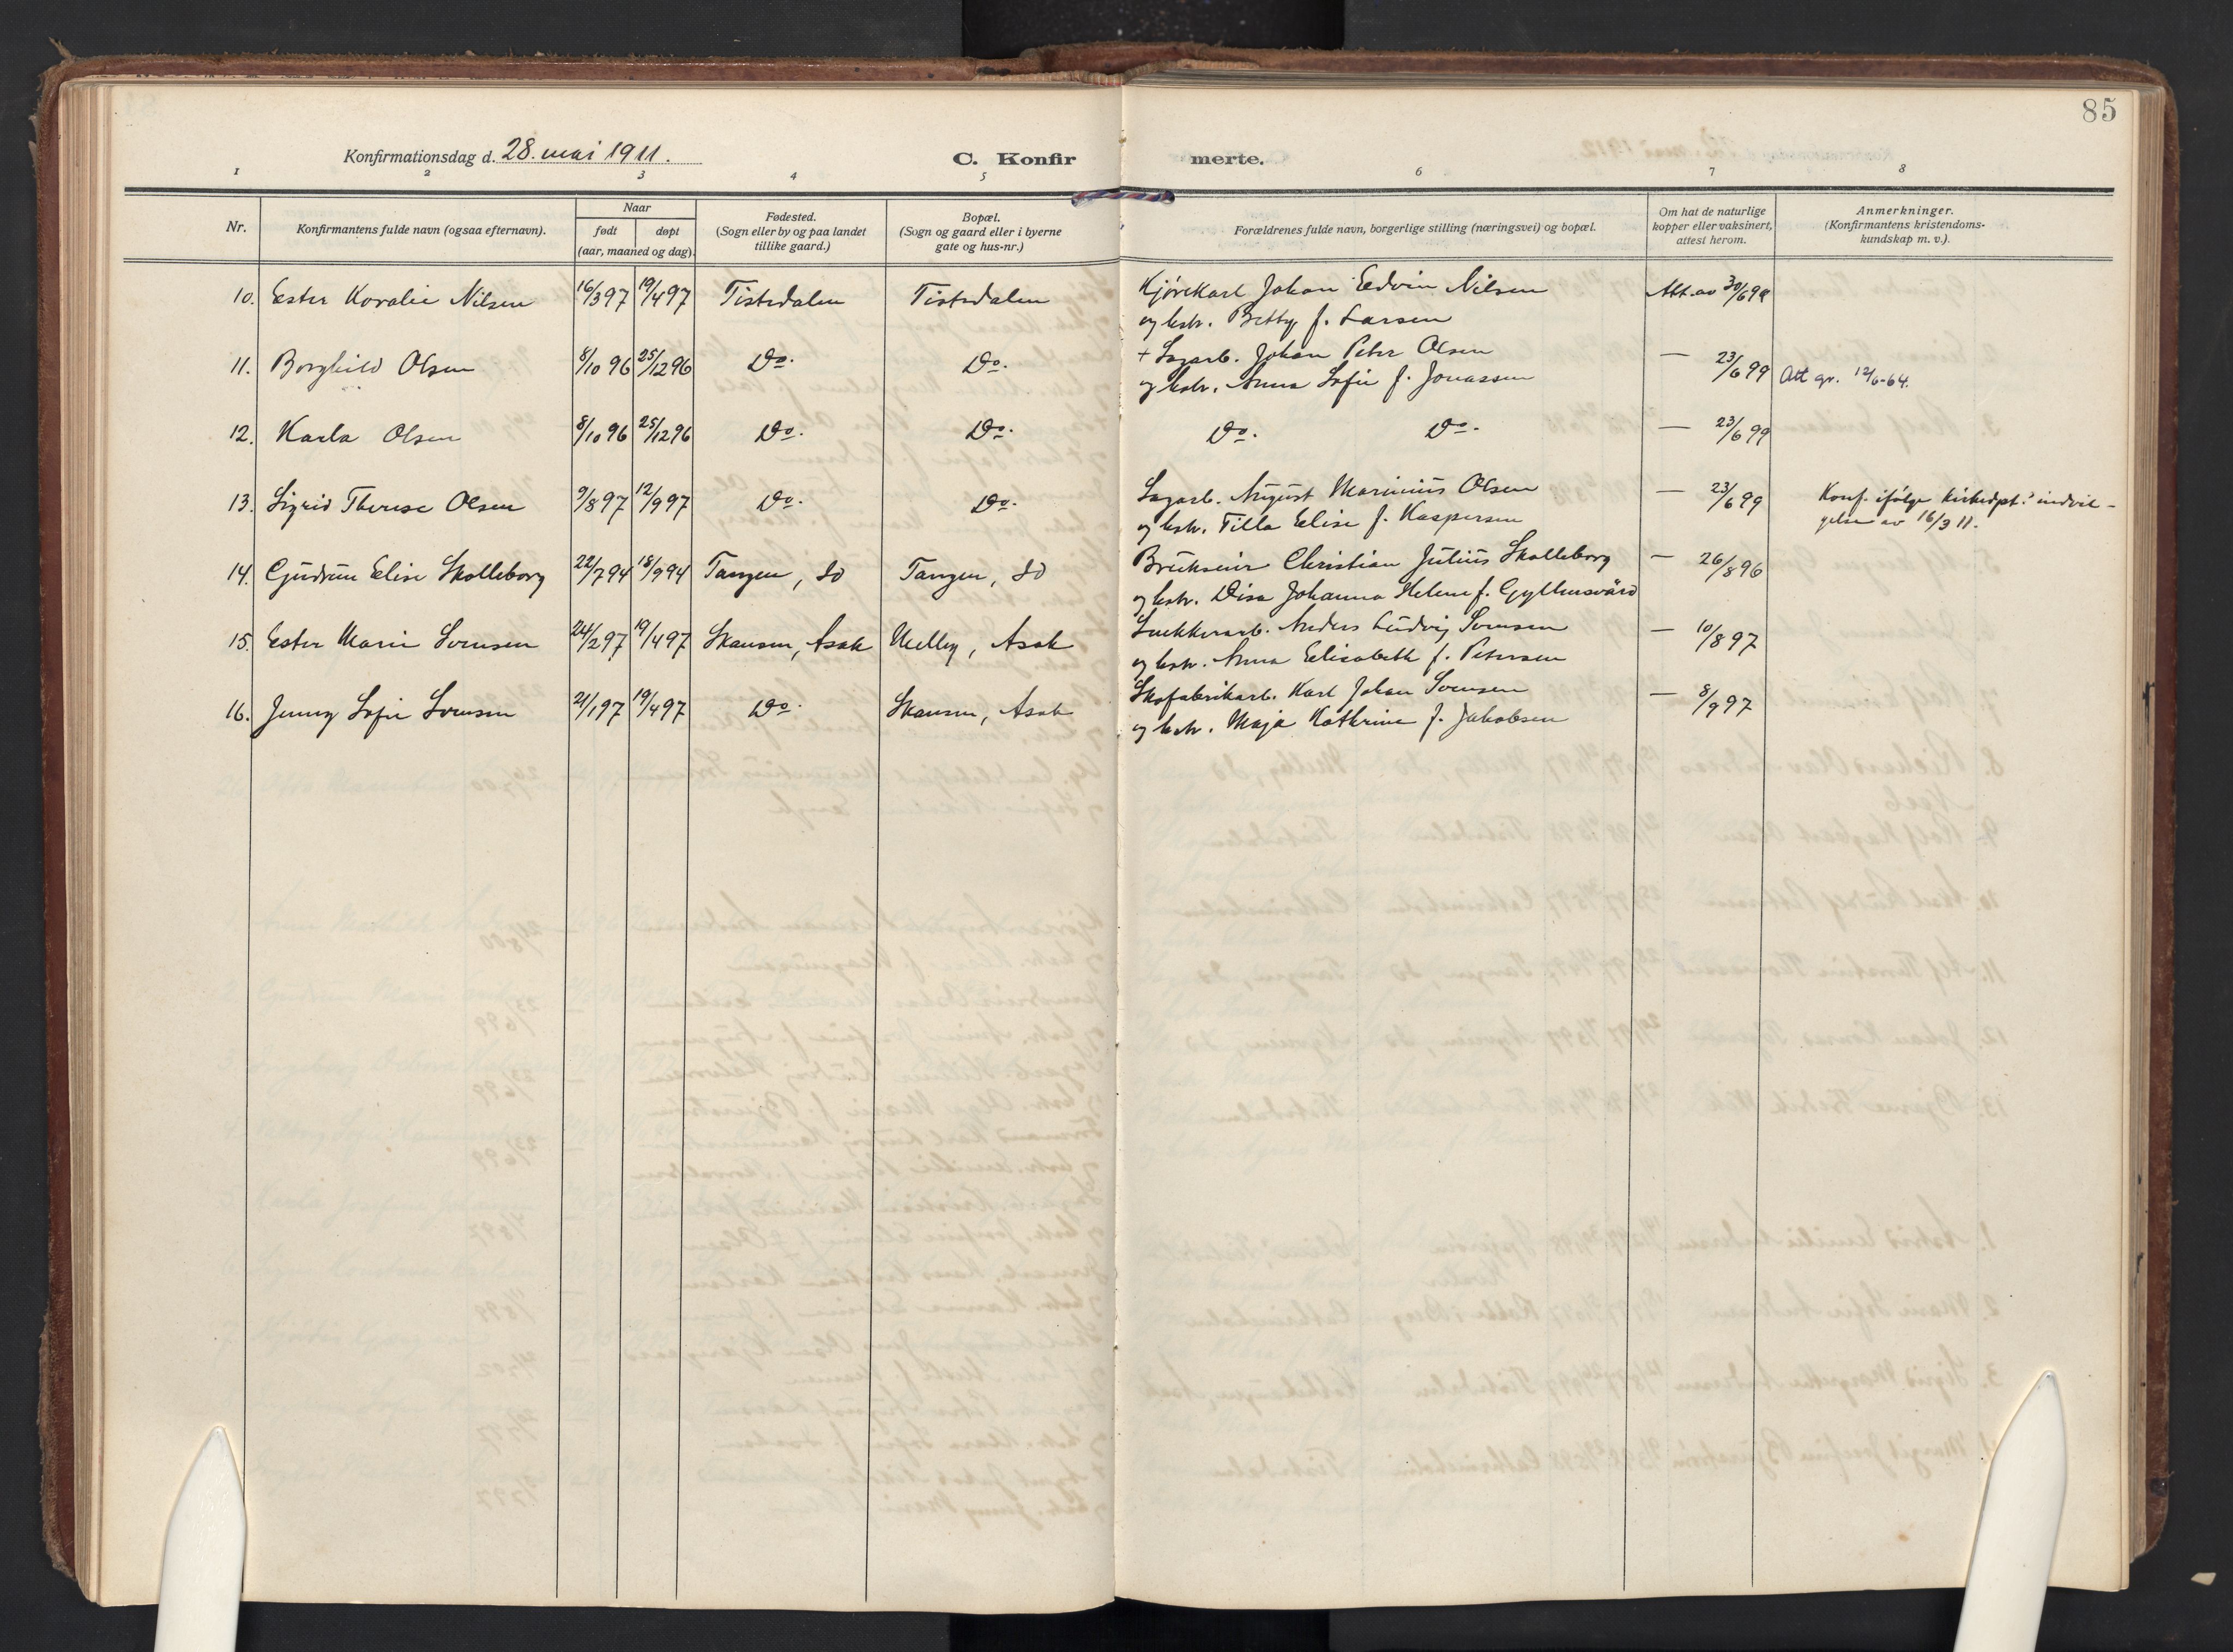 85
Konfirmationsdag d. 28. mai 1911.
C. Konfirmerte.
1 2 3 4 5 6 7 8
Nr.
Konfirmantens fulde navn (ogsaa efternavn).
Naar
født døpt
(aar, maaned og dag).
Fødested.
(Sogn eller by og paa landet
tillike gaard.)
Bopæl.
(Sogn og gaard eller i byerne
gate og hus-nr.)
Forældrenes fulde navn, borgerlige stilling (næringsvei) og bopæl.
Om hat de naturlige
kopper eller vaksinert,
attest herom.
Anmerkninger.
(Konfirmantens kristendoms-
kundskap m. v.).
10. Ester Koralie Nilsen 16/3 97 19/4 97 Tistedalen Tistedalen Kjørekarl Johan Edvin Nilsen Att. av 30/6 98
og hstr. Betty f. Larsen
11. Borghild Olsen 8/10 96 25/12 96 Do. Do. + Sagarb. Johan Peter Olsen — 23/6 99 Att gr. 12/6-64.
og hstr. Anna Sofie f. Jonassen
12. Karla Olsen 8/10 96 25/12 96 Do. Do. Do. Do. — 23/6 99
13. Sigrid Therese Olsen 9/8 97 12/9 97 Do. Do. Sagarb. August Marinius Olsen — 23/6 99 Konf. ifølge kirkedpt.s indvil-
og hstr. Tilla Elise f. Kaspersen gelse av 16/3 11.
14. Gudrun Elise Skolleborg 22/7 94 18/9 94 Tangen, Id Tangen, Id Brukseier Christian Julius Skolleborg — 26/8 96
og hstr. Disa Johanna Helene f. Gyllensvärd
15. Ester Marie Svensen 24/2 97 19/4 97 Skansen, Asak Melby, Asak Snekkerarb. Anders Ludvig Svensen — 10/8 97
og hstr. Anna Elisabeth f. Petersen
16. Jenny Sofie Svensen 21/1 97 19/4 97 Do. Skansen, Asak Skofabrikarb. Karl Johan Svensen — 8/9 97
og hstr. Maja Kathrine f. Jakobsen